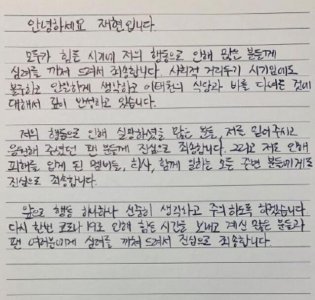 안녕하세요 재현입니다.
모두가 힘든 시기에 저의 행동으로 인해 많은 분들께
심려를 끼쳐 드려서 죄송합니다. 사회적 거리두기 시기임에도
불구하고 안일하게 생각하고 이태원의 식당과 바를 다녀온 것에
대해서 깊이 반성하고 있습니다.
저의 행동으로 인해 실망하셨을 많은 분들, 저를 믿어주시고
응원해 주셨던 팬 분들께 진심으로 죄송합니다. 그리고 저로 인해
피해를 입게 된 멤버들, 회사, 함께 일하는 모든 주변 분들께도
진심으로 죄송합니다.
앞으로 행동 하나하나 신중히 생각하고 주의하도록 하겠습니다
다시 한번 코로나 19로 인해 힘든 시간을 보내고 계신 많은 분들과
팬 여러분에게 심려를 끼쳐 드려서 진심으로 죄송합니다.